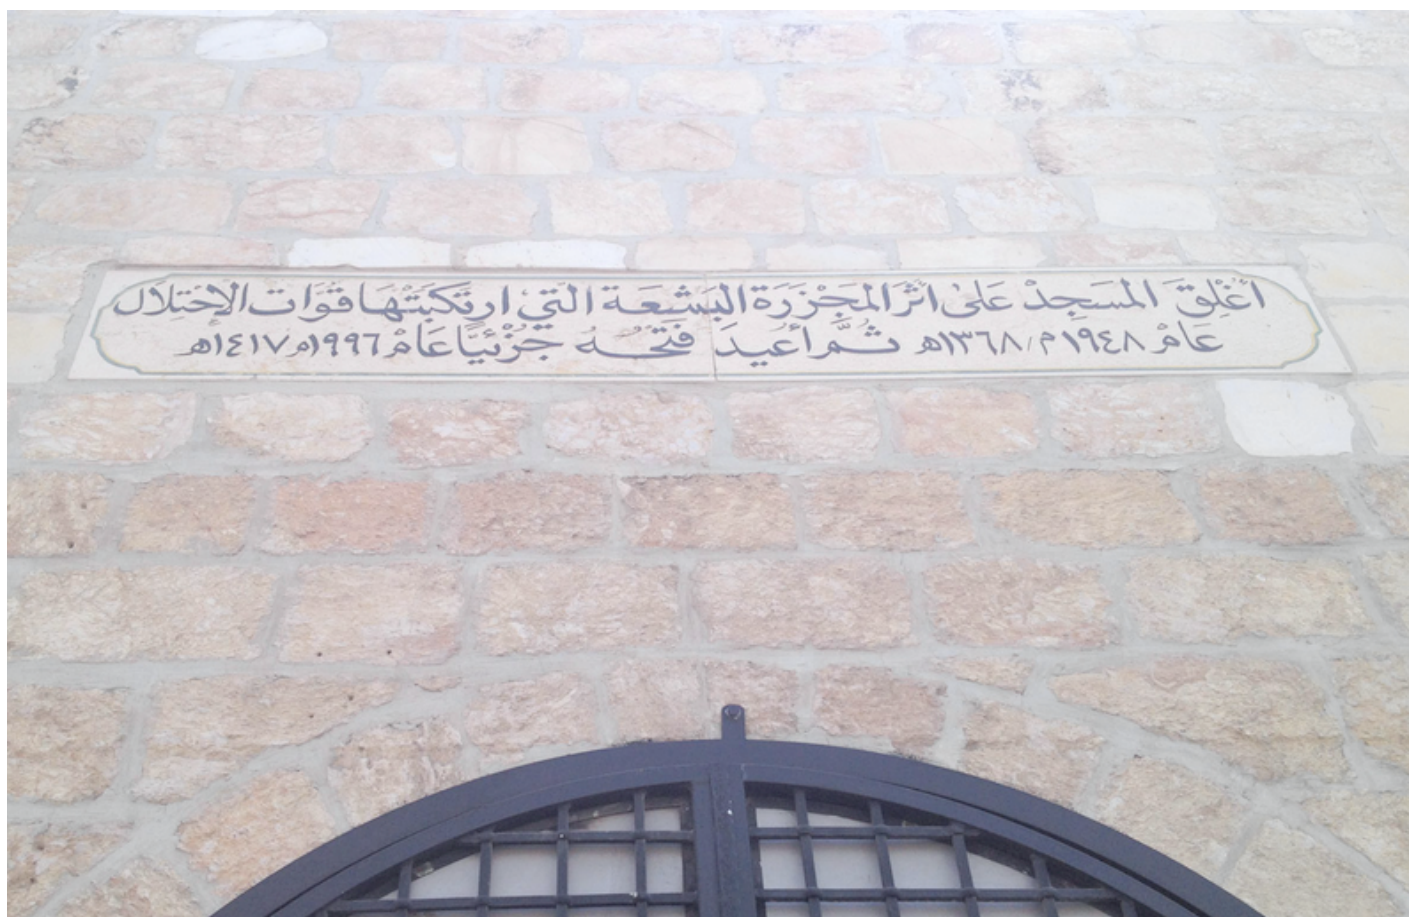 أُغْلِقَ المَسَجِدْ عَلىٰ أثَرَ المَجْزَرَة البَشعَة التي ارتَكَبَتْهَا قُوَات الاِحْتِلَال
عَامْ ١٩٤٨م/١٣٦٨ه ثُمَّ أعُيدَ فَتَحُهُ جُزْئيًا عَامْ ١٩٩٦م/١٤١٧ه